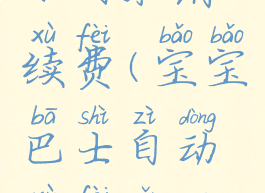 xù fèi bǎo bǎo
续费(宝宝
bā shì zì dòng
巴士自动